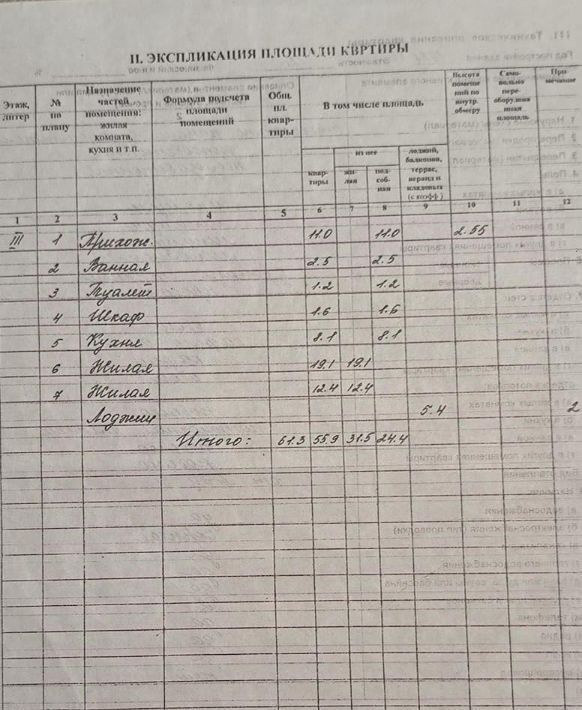 II. ЭКСПЛИКАЦИЯ ПЛОЩАДИ КВРТИРЫ
Этаж, литер | № по плану | Назначение частей помещения: жилая комната, кухня и т.п. | Формула подсчета площади помещений | Общ. пл. квартиры | В том числе площадь | Высота помещений по внутр. обмеру | Само-вольно пере-оборудованная площадь | При-мечание
из нее
квар-тиры | жи-лая | под-соб-ная | лоджий, балконов, террас, веранд и кладовых (с коэфф)
1 | 2 | 3 | 4 | 5 | 6 | 7 | 8 | 9 | 10 | 11 | 12
III | 1 | Прихож. | 11.0 | 11.0 | 2.55
2 | Ванная | 2.5 | 2.5
3 | Туалет | 1.2 | 1.2
4 | Шкаф | 1.6 | 1.6
5 | Кухня | 8.1 | 8.1
6 | Жилая | 19.1 | 19.1
7 | Жилая | 12.4 | 12.4
Лоджии | 5.4 | 2
Итого: | 61.3 | 55.9 | 31.5 | 24.4